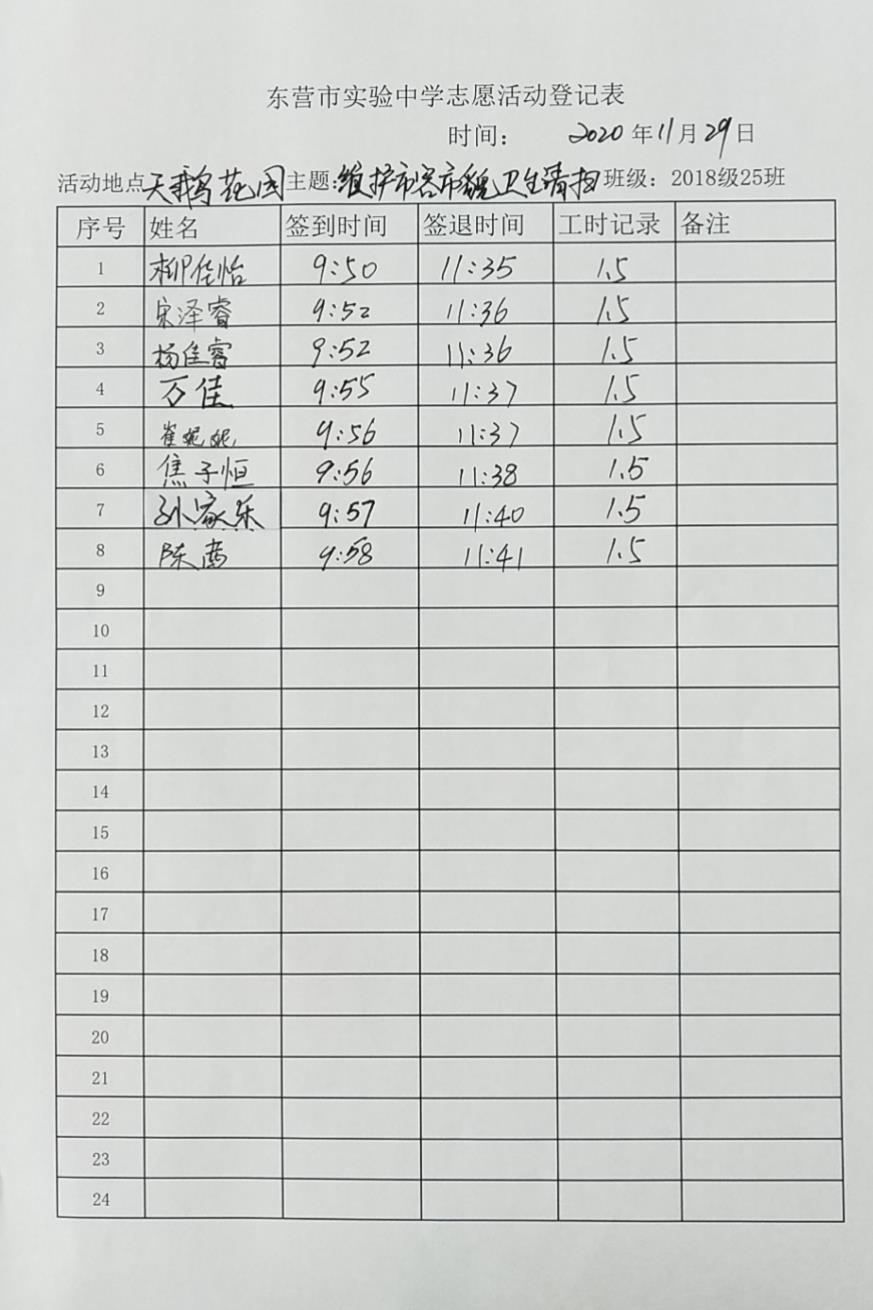 东营市实验中学志愿活动登记表
时间： 2020 年 11 月 29 日
活动地点 天鹅花园 主题：维护市容市貌卫生清扫 班级：2018级25班
序号 姓名 签到时间 签退时间 工时记录 备注
1 柳佳怡 9:50 11:35 1.5
2 宋泽睿 9:52 11:36 1.5
3 杨佳睿 9:52 11:36 1.5
4 万佳 9:55 11:37 1.5
5 崔妮妮 9:56 11:37 1.5
6 焦子恒 9:56 11:38 1.5
7 孙家乐 9:57 11:40 1.5
8 陈茜 9:58 11:41 1.5
9
10
11
12
13
14
15
16
17
18
19
20
21
22
23
24